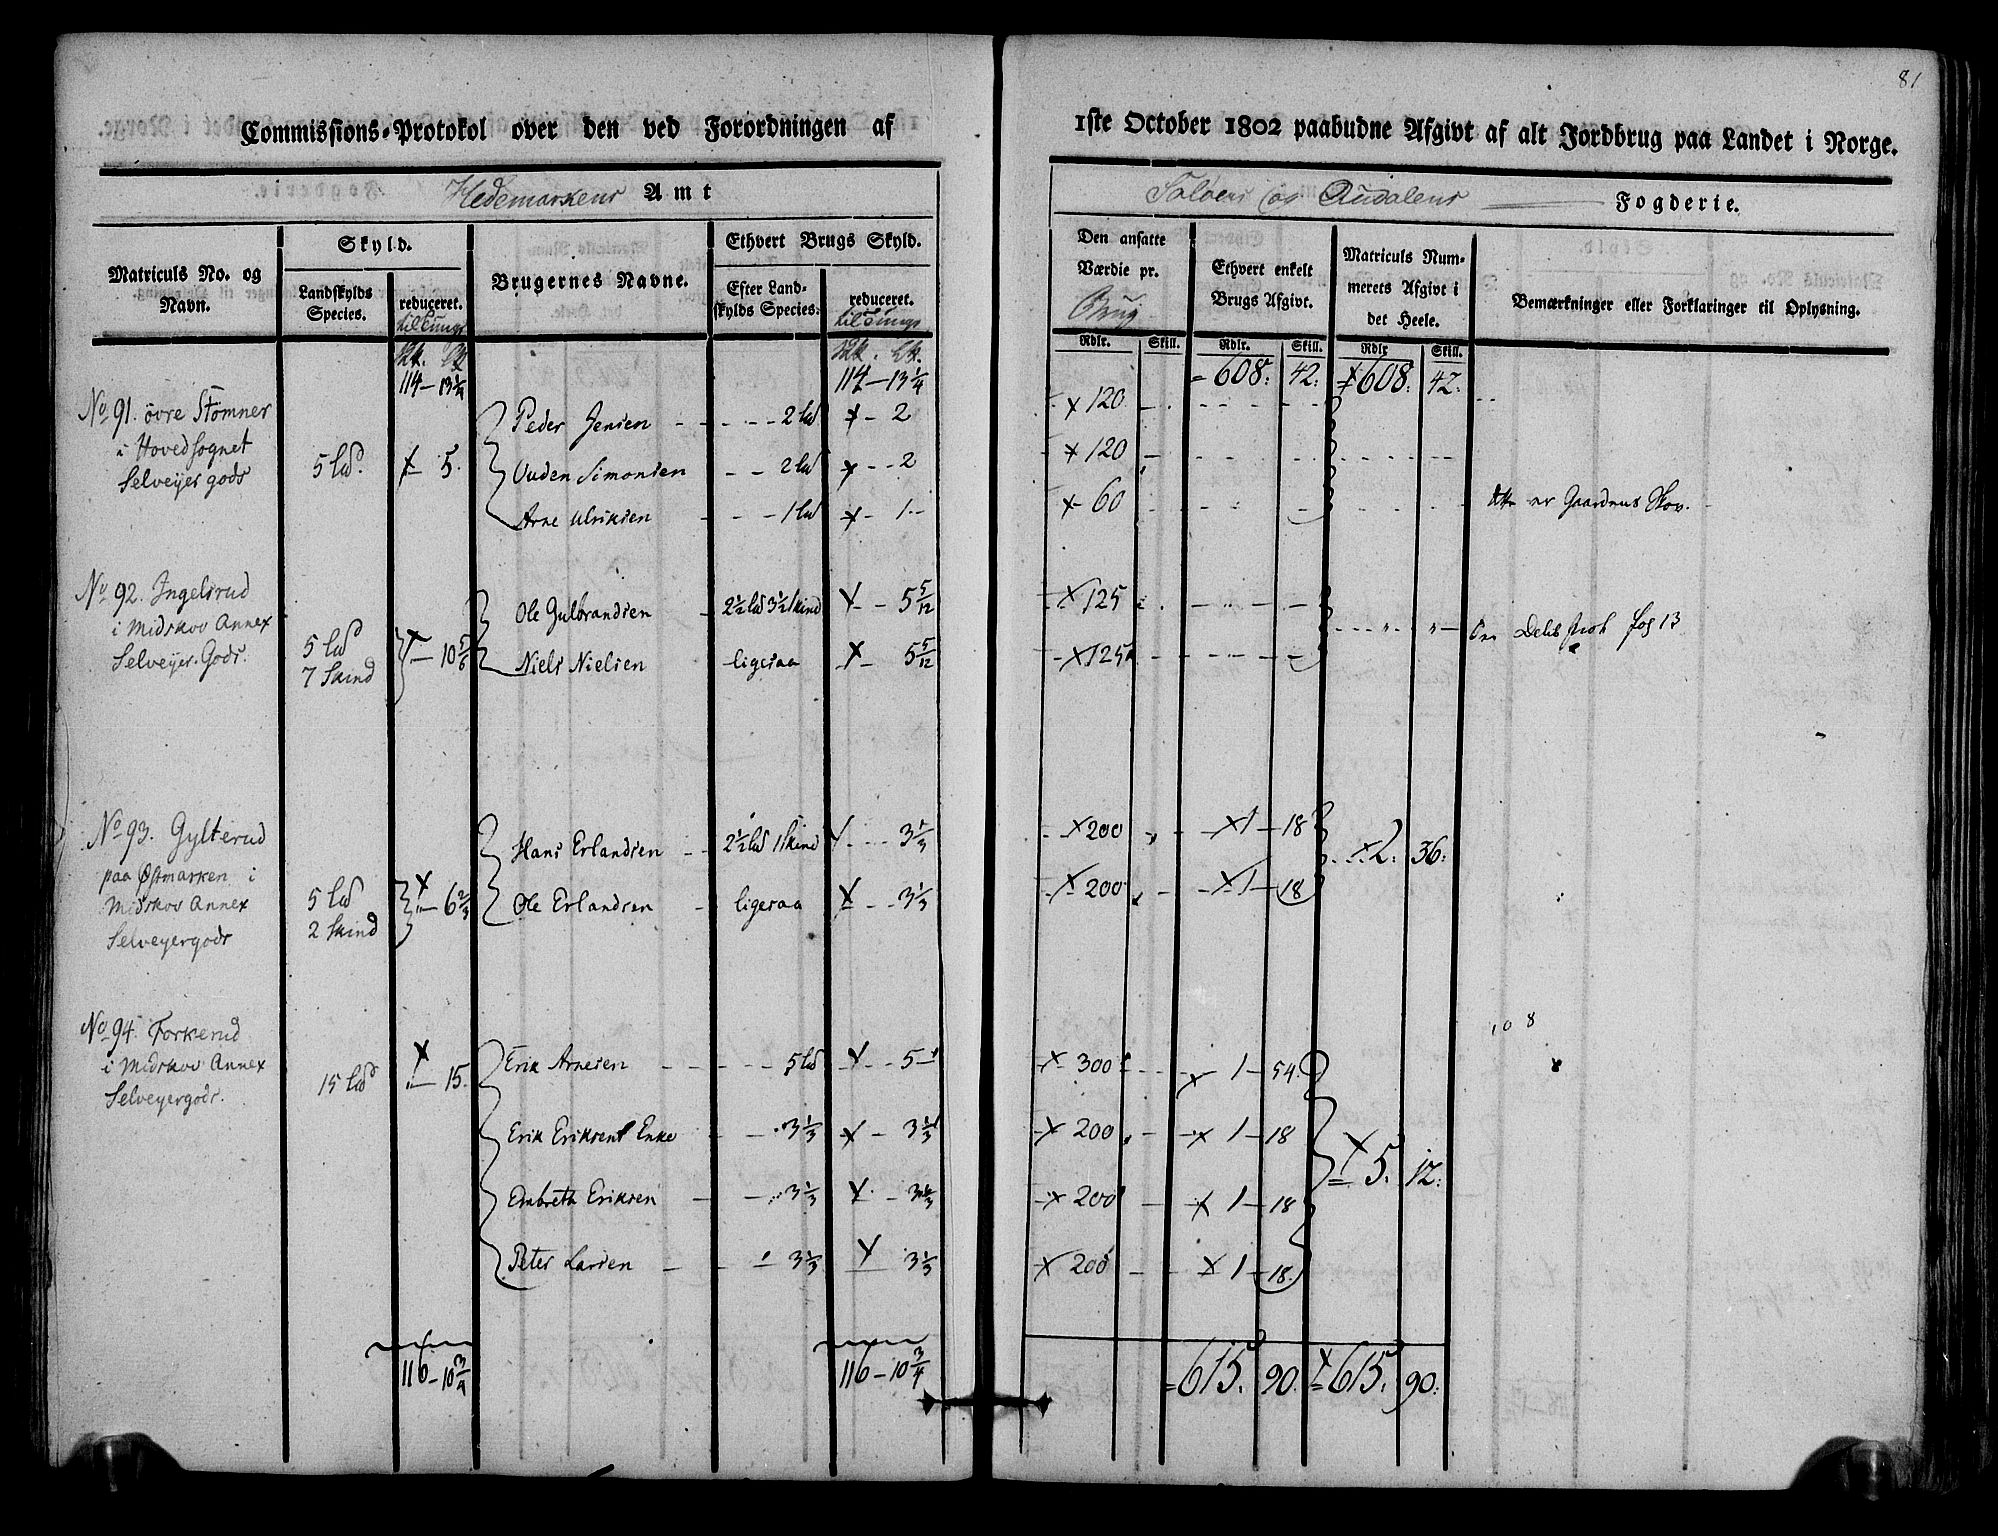 81
Commissions-Protokol over den ved Forordningen af 1ste October 1802 paabudne Afgivt af alt Jordbrug paa Landet i Norge.
Hedemarkens Amt
Soløers og Oudalens Fogderie.
Matriculs No. og Navn.
Skyld.
Landskylds Species.
reduceret.
til Tunge
Brugernes Navne.
Ethvert Brugs Skyld.
Efter Landskylds Species.
reduceret.
til Tunge
Den ansatte Værdie pr.
Brug
Rdlr. Skill.
Ethvert enkelt Brugs Afgivt.
Rdlr. Skill.
Matriculs Nummerets Afgivt i det Heele.
Rdlr Skill.
Bemærkninger eller Forklaringer til Oplysning.
114 - 13 1/4 114 - 13 1/4 608: 42: 608: 42:
No 91. øvre Stømner
i Hovedsognet
Selveyer gods
5 Lød. 5.
Peder Jensen - - - 2 Lød - 2 120
Ouden Simonsen - - 2 Lød - - 2 120
Arne Ulriksen - - - 1 Lød - 1 - 60
er Gaardens Skov.
No 92. Ingelsrud
i Midskov Annex
Selveyer Gods.
5 Lød
7 Skind
10 5/6
Ole Gulbrandsen - 2 1/2 Lød 3 1/2 Skind - - 5 5/12 125
Niels Nielsen ligesaa - 5 5/12 125
fog 13
No 93. Gylterud
paa Østmarken i
Midskov Annex
Selveyergods
5 Lød
2 Skind
6 2/3
Hans Erlandsen - - 2 1/2 Lød 1 Skind - - - 3 1/3 200 1 - 18
Ole Erlandsen - ligesaa - - 3 1/3 200 1 - 18
2: 36:
No 94. Torkerud
i Midskov Annex
Selveyergods.
15 Lød - 15.
Erik Arnesen - - - - - 5 Lød - 5 - 300 1 - 54.
Erik Eriksens Enke - - 3 1/3 - 3 1/3 200 1 - 18
Embreth Eriksen - - 3 1/3 - 3 1/3 200 1 - 18
Peter Larsen - - - 3 1/3 - 3 1/3 200 1 - 18.
5. 12:
108
116 - 10 3/4 116 - 10 3/4 615. 90. 615. 90: